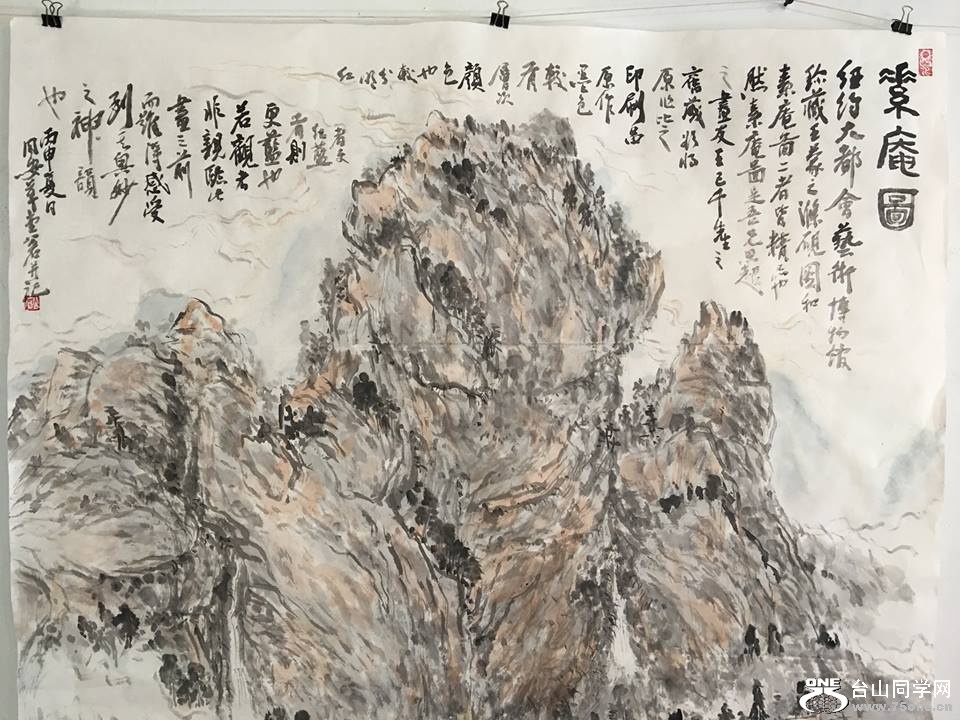 素庵圖
紐約大都會藝術博物館
珍藏王蒙之滌硯圖和
素庵圖二者皆精品也
然素庵圖是吾兄思超
之畫友王己千先生之
舊藏 將
原作比之
印刷品
原作
墨色
較
有
層次
顏
色
也
較
分
明
紅
者更
紅藍
者則
更藍也
若觀者
非親臨此
畫之前
而難得感受
到其奧妙
之神韻
也
丙申夏日
風安草堂
並記
ONE
台山同学网
www.75one.cn